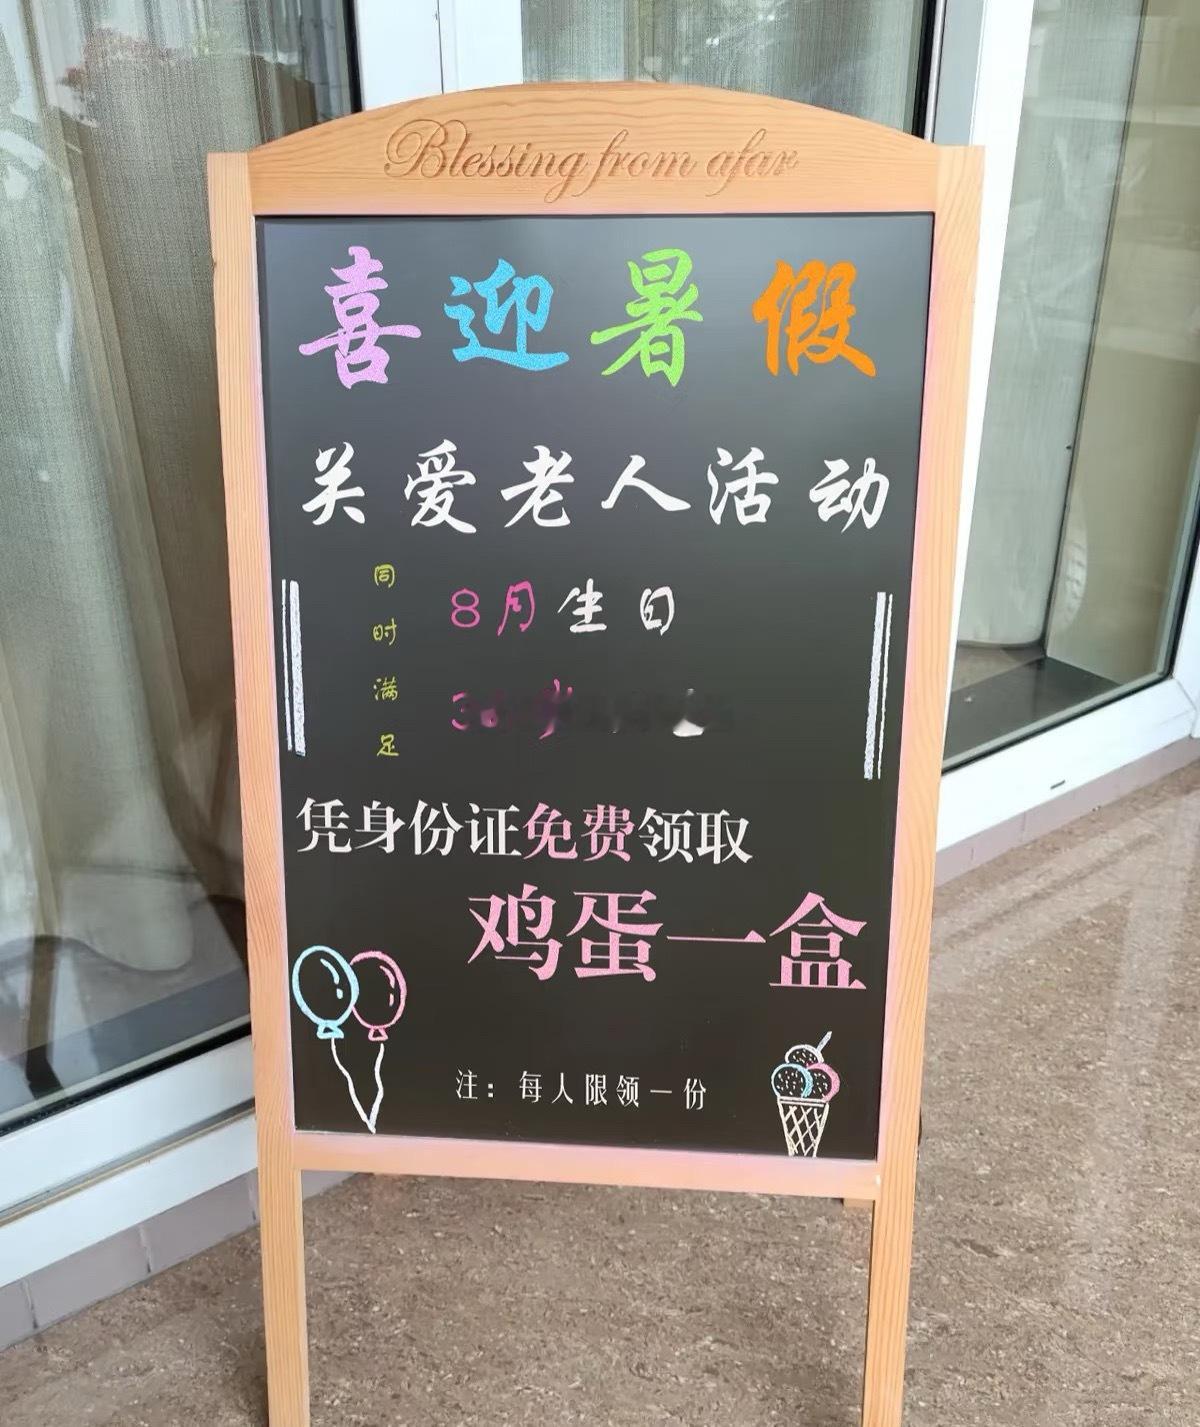 Blessing from afar
喜迎暑假
关爱老人活动
同时满足
8月生日
凭身份证免费领取
鸡蛋一盒
注：每人限领一份